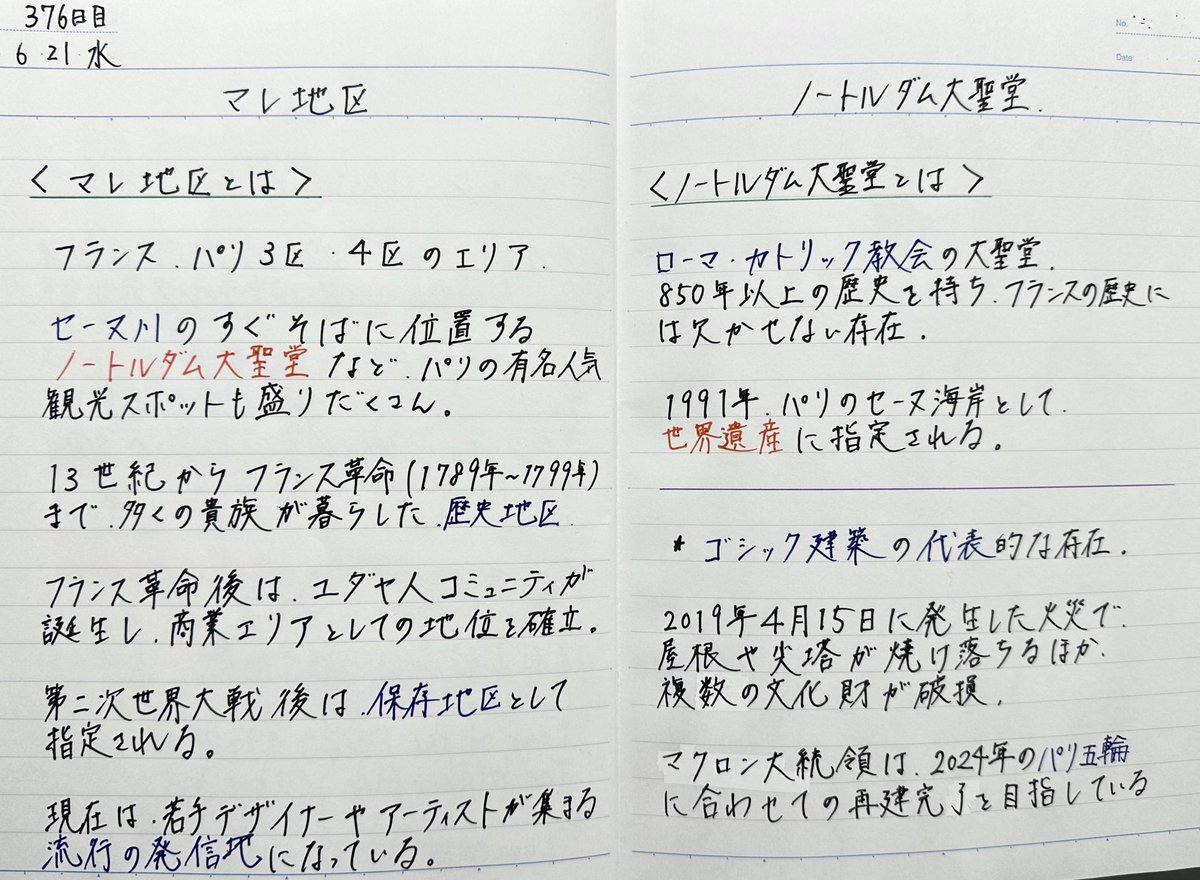 376日目
6・21・水
マレ地区
<マレ地区とは>
フランス、パリ3区・4区のエリア、
セーヌ川のすぐそばに位置する
ノートルダム大聖堂など、パリの有名人気
観光スポットも盛りだくさん。
13世紀からフランス革命(1789年~1799年)
まで、多くの貴族が暮らした、歴史地区
フランス革命後は、ユダヤ人コミュニティが
誕生し、商業エリアとしての地位を確立。
第二次世界大戦後は、保存地区として
指定される。
現在は、若手デザイナーやアーティストが集まる
流行の発信地になっている。
No.
Date
ノートルダム大聖堂.
<ノートルダム大聖堂とは>
ローマ・カトリック教会の大聖堂.
850年以上の歴史を持ち、フランスの歴史に
は欠かせない存在.
1991年、パリのセーヌ海岸として、
世界遺産に指定される。
* ゴシック建築の代表的な存在.
2019年4月15日に発生した火災で、
屋根や尖塔が焼け落ちるほか、
複数の文化財が破損.
マクロン大統領は、2024年のパリ五輪
に合わせての再建完了を目指している